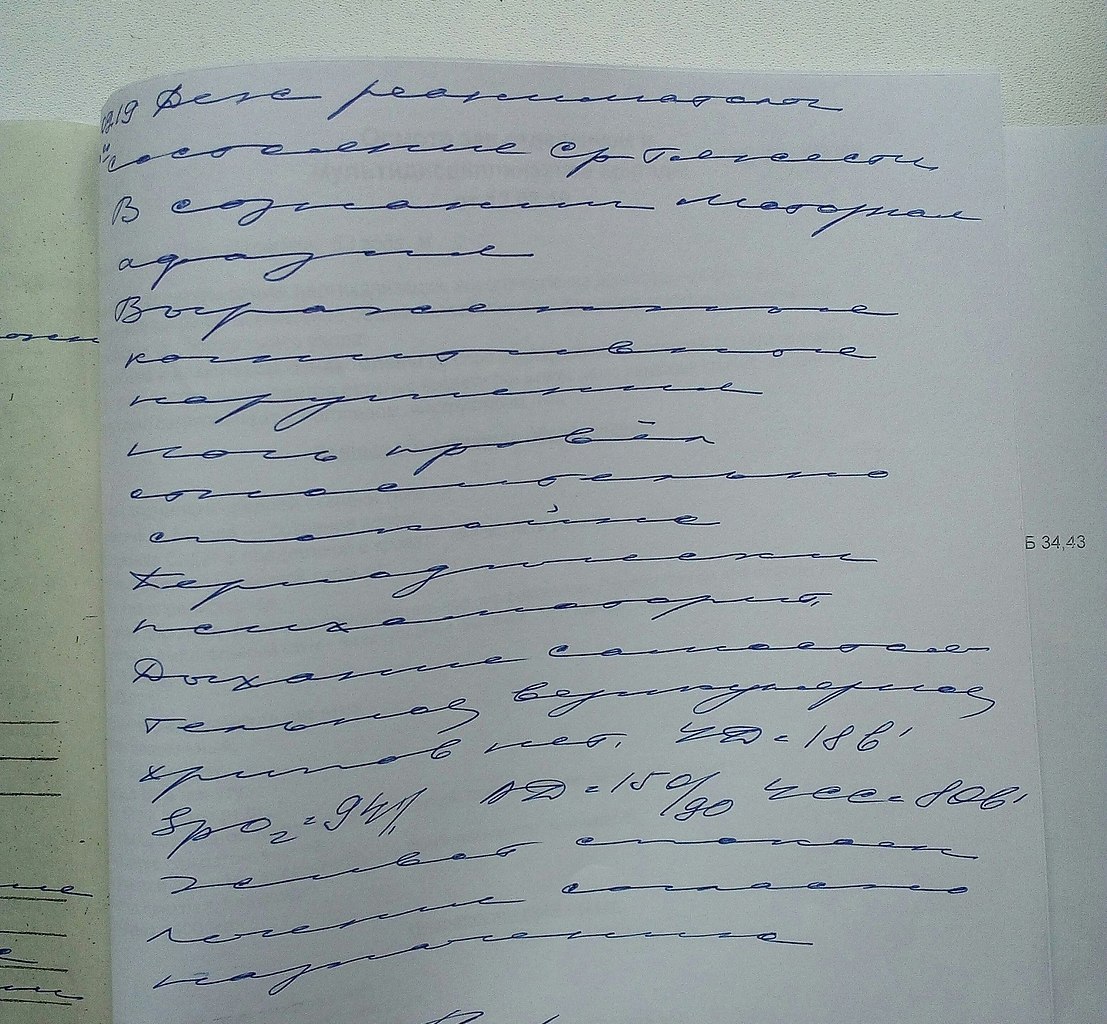 09.19 Деж реаниматолог
Состояние ср тяжести
В сознании моторная
афазия
Выраженные
когнитивные
нарушения
ночь провёл
относительно
спокойно
Периодически
психомоторит.
Дыхание самостоя-
тельное, везикулярное,
хрипов нет. ЧД = 18 в'
SpO2 = 94% АД = 150/90 ЧСС = 80 в'
живот спокоен
лечение согласно
назначению
Б 34,43